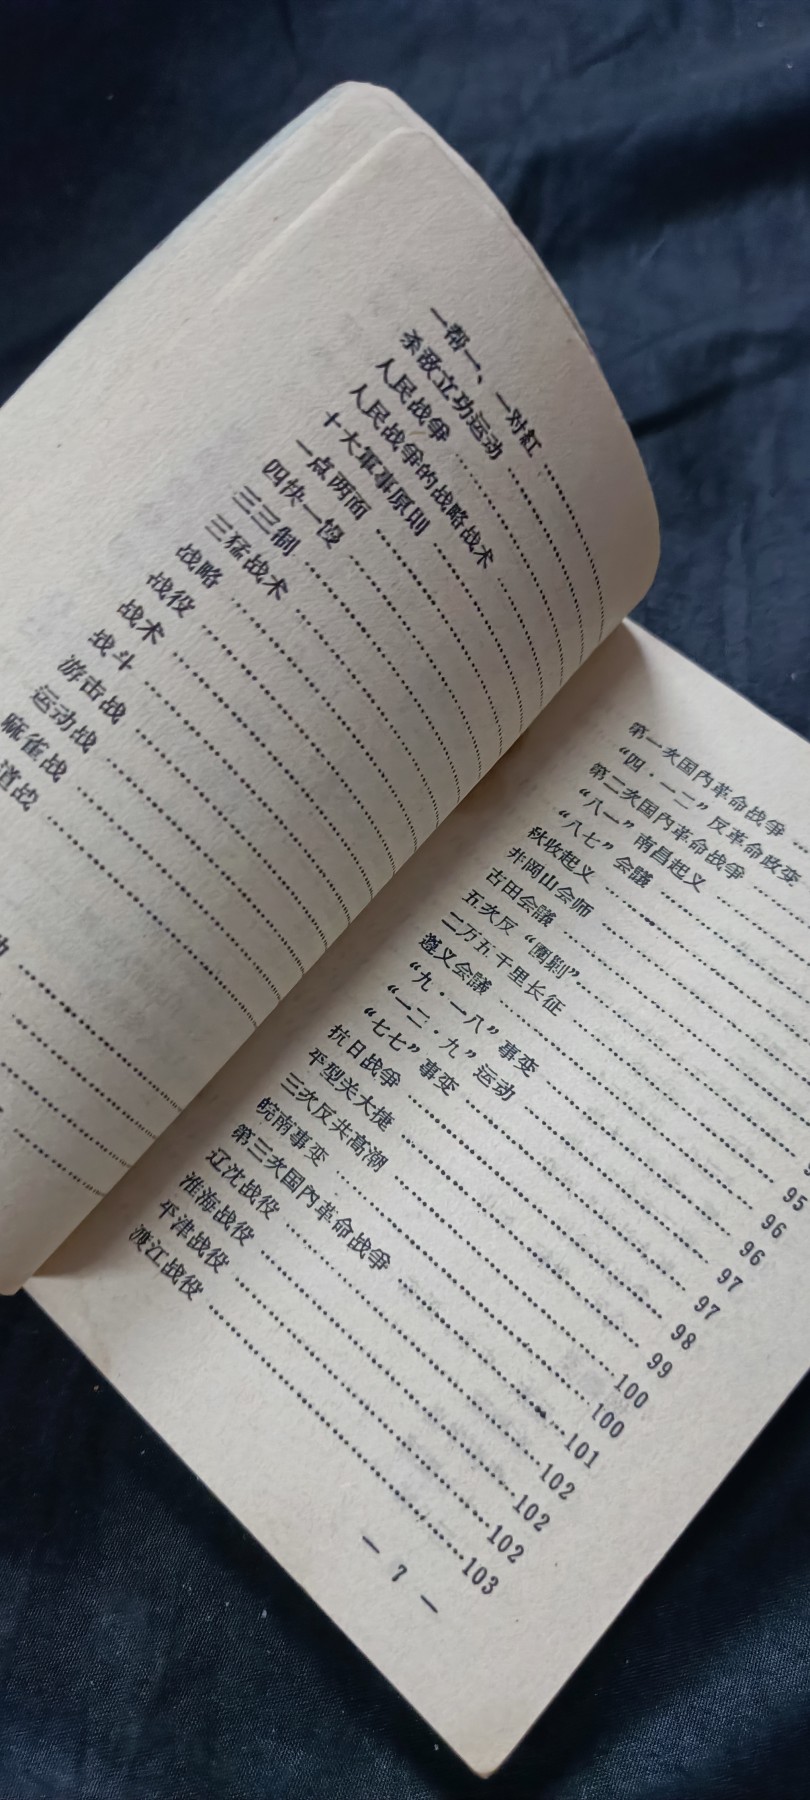 一帮一、一对紅
杀敌立功运动
人民战争
人民战争的战略战术
十大軍事原则
一点两面
四快一慢
三三制
三猛战术
战略
战役
战术
战斗
游击战
运动战
麻雀战
道战
第一次国內革命战爭
“四·一二”反革命政变
第二次国內革命战爭
“八一”南昌起义
“八七”会議
秋收起义
井岡山会师
古田会議
五次反“圍剿”
二万五千里长征
遵义会議 95
“九·一八”事变 96
“一二·九”运动 96
“七七”事变 97
抗日战爭 97
平型关大捷 98
三次反共高潮 99
皖南事变 100
第三次国內革命战爭 100
辽沈战役 101
淮海战役 102
平津战役 102
渡江战役 103
— 7 —